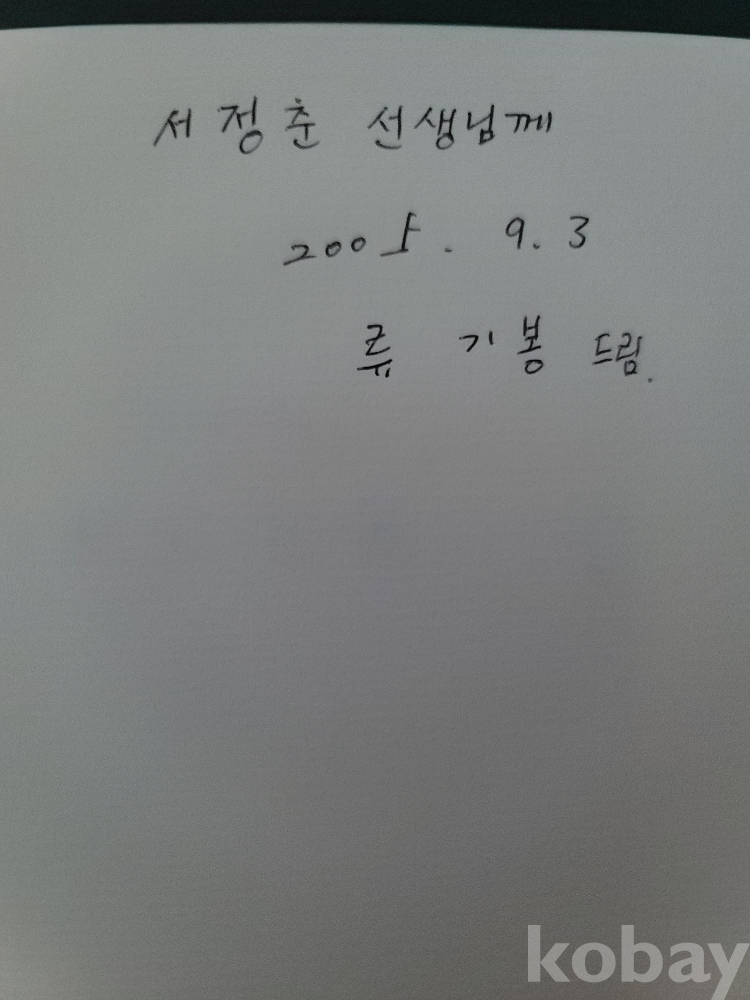 서정춘 선생님께
2005. 9. 3
류 기봉 드림.
kobay